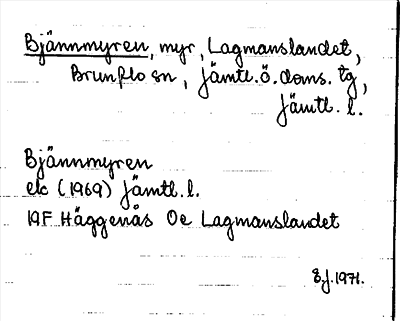 Bjännmyren, myr, Lagmanslandet,
Brunflo sn, Jämtl. ö. doms. tg,
Jämtl. l.
Bjännmyren
ek (1969) Jämtl. l.
19F Häggenås 0e Lagmanslandet
1971.